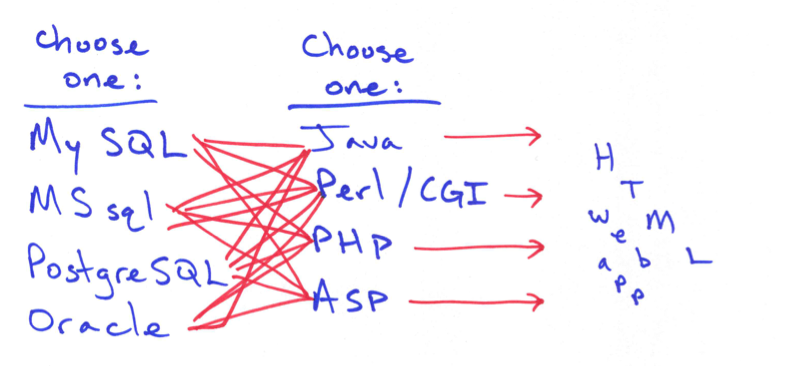 Choose
one:
My SQL
MS sql
PostgreSQL
Oracle
Choose
one:
Java
Perl/CGI
PHP
ASP
HTML
web
app